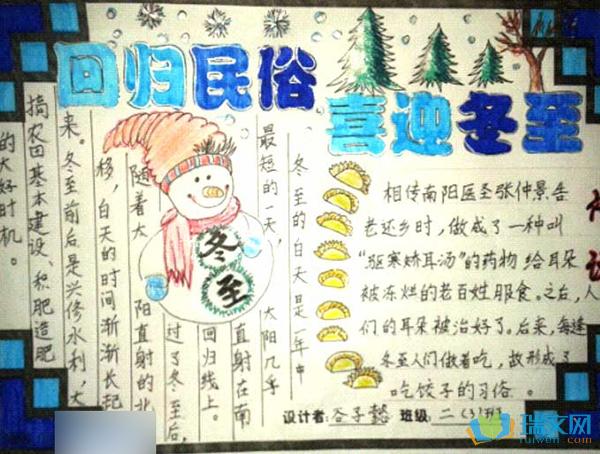 回归民俗
喜迎冬至
冬至的白天是一年中
最短的一天，太阳几乎
直射在南
回归线上。
过了冬至后，
随着太阳直射的北
移，白天的时间渐渐长起
来。冬至前后是兴修水利，大
搞农田基本建设、积肥造肥
的大好时机。
冬至
相传南阳医圣张仲景告
老还乡时，做成了一种叫
“驱寒娇耳汤”的药物给耳朵
被冻烂的老百姓服食。之后，人
们的耳朵被治好了。后来，每逢
冬至人们做着吃，故形成了
吃饺子的习俗。
设计者：谷子懿 班级：二（3）班
瑞文网
ruiwen.com